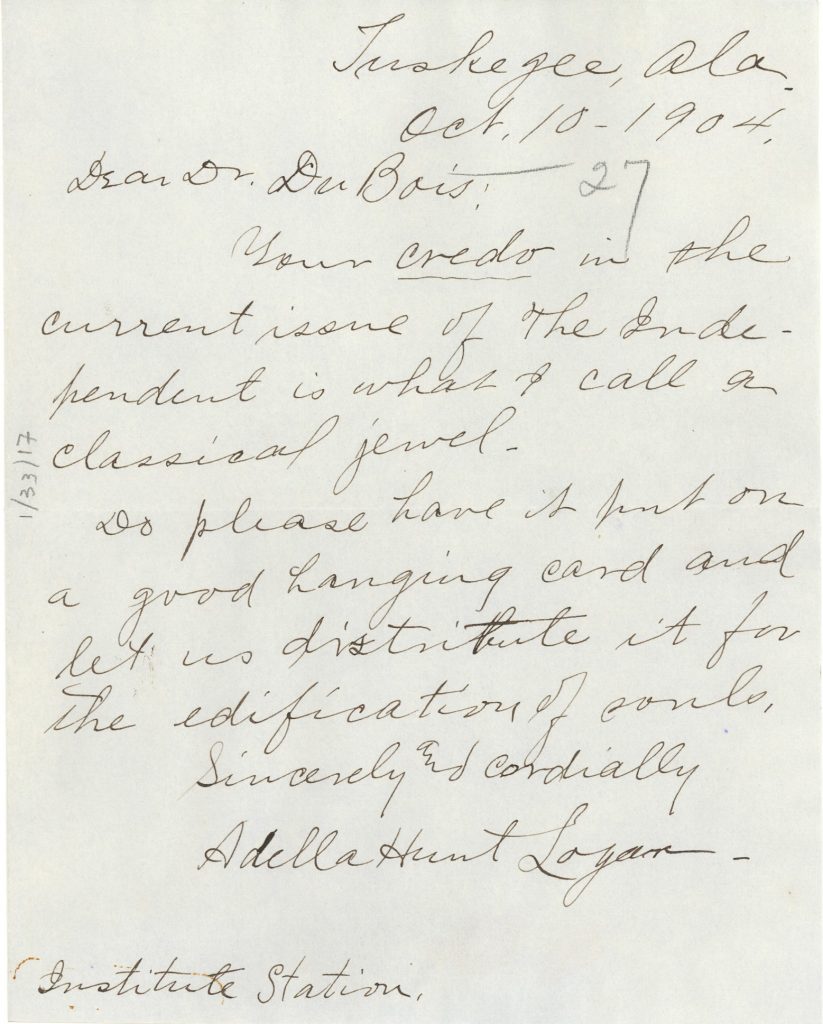 Tuskegee, Ala.
Oct. 10-1904.
Dear Dr. Du Bois:
27
Your credo in the
current issue of The Inde-
pendent is what I call a
classical jewel.
Do please have it put on
a good hanging card and
let us distribute it for
the edification of souls.
Sincerely and cordially
Adella Hunt Logan
Institute Station.
1/33/17